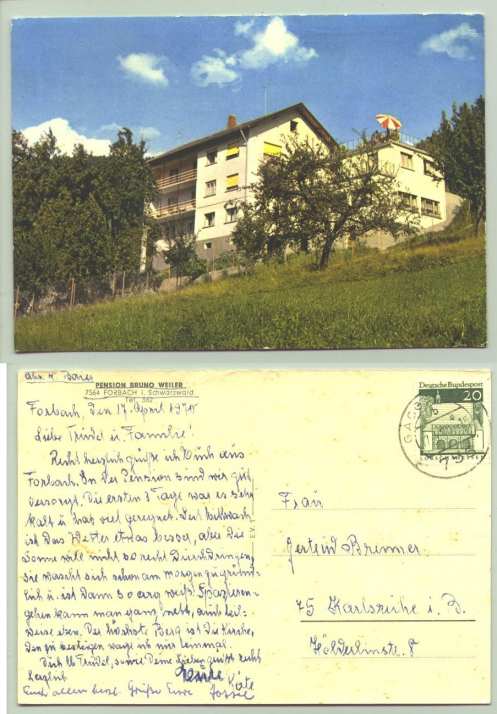 Abs. H. Borres
PENSION BRUNO WEILER
7564 FORBACH i. Schwarzwald
Tel. 382
Forbach, den 17. April 1970
Liebe Trudel u. Familie!
Recht herzlich grüße ich Euch aus
Forbach. In der Pension sind wir gut
versorgt. Die ersten 3 Tage war es sehr
kalt u. hat viel geregnet. Seit Mittwoch
ist das Wetter etwas besser, aber die
Sonne will nicht so recht durchdringen,
sie wascht sich schon am morgen gründ-
lich u. ist dann so arg weiß. Spazieren-
gehen kann man ganz nett, auch teil-
weise eben. Der höchste Berg ist die Kirche,
den zu besteigen wage ich nur einmal.
Dich lb Trudel, sowie Deine Lieben grüßt recht
herzlich
Euch allen herzl. Grüße Eure
Deutsche Bundespost
20
LORSCH HESSEN
GAGG
75
Frau
Gertrud Bremer
75 Karlsruhe i. B.
Hölderlinstr. 8